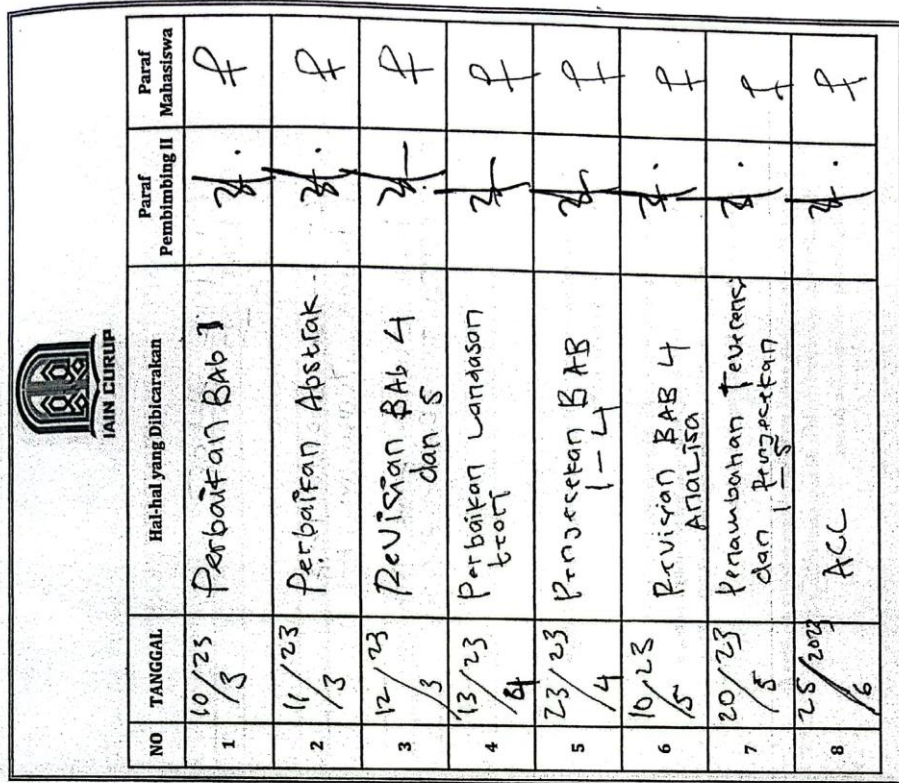 IAIN CURUP
NO TANGGAL Hal-hal yang Dibicarakan Paraf Pembimbing II Paraf Mahasiswa
1 10/23 /3 Perbaikan BAb 1
2 11/23 /3 Perbaikan Abstrak.
3 12/23 /3 Revisian BAb 4
dan 5
4 13/23 /4 Perbaikan Landasan
teori
5 23/23 /4 Pengecekan BAB
1 - 4
6 10/23 /5 Revisian BAB 4
Analisa
7 20/23 /5 Penambahan referensi
dan Pengecekan
1 - 5
8 25/2023 /6 ACC